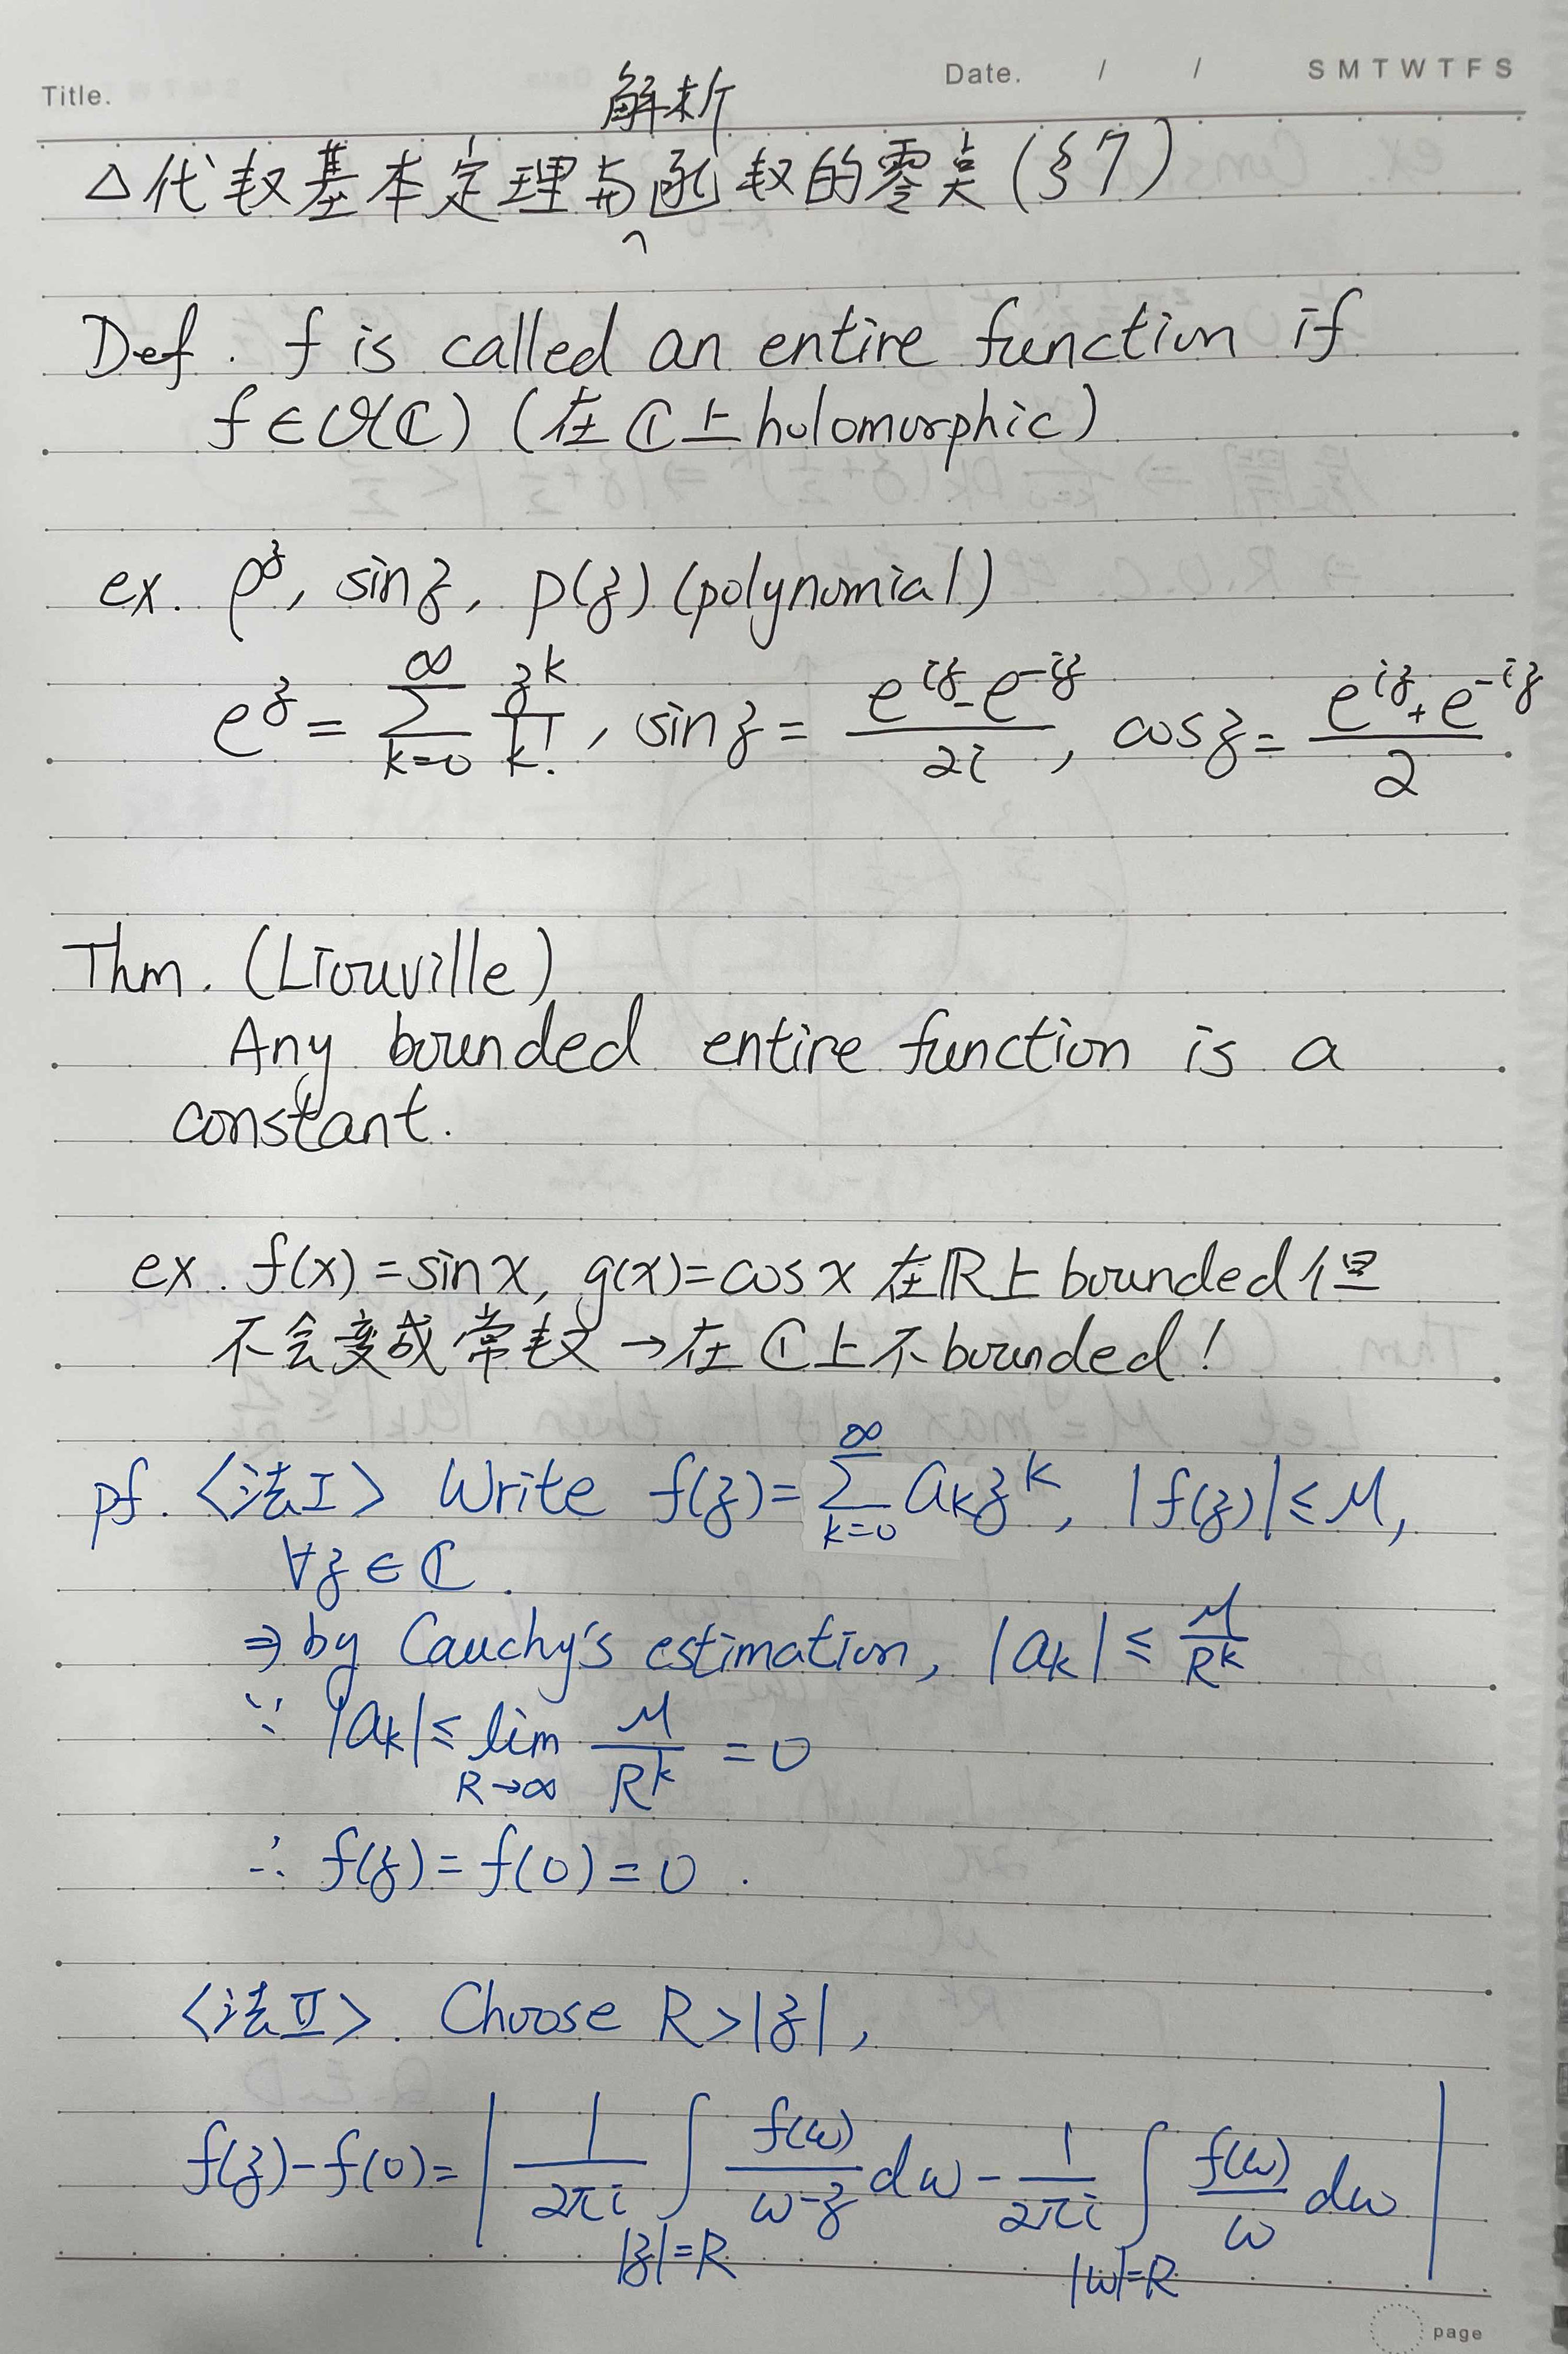 Title.
Date. / / S M T W T F S
△代数基本定理与解析函数的零点(§7)
Def. f is called an entire function if
f∈𝒪(ℂ) (在ℂ上holomorphic)
ex. e^z, sin z, p(z) (polynomial)
e^z = \sum_{k=0}^{∞} \frac{z^k}{k!}, sin z = \frac{e^{iz}-e^{-iz}}{2i}, cos z = \frac{e^{iz}+e^{-iz}}{2}
Thm. (Liouville)
Any bounded entire function is a
constant.
ex. f(x)=sin x, g(x)=cos x 在ℝ上bounded但
不会变成常数→在ℂ上不bounded!
pf. <法I> Write f(z)=\sum_{k=0}^{∞} a_k z^k, |f(z)|≤M,
∀z∈ℂ.
⇒ by Cauchy's estimation, |a_k| ≤ \frac{M}{R^k}
∵ |a_k| ≤ \lim_{R→∞} \frac{M}{R^k} = 0
∴ f(z)=f(0)=0.
<法II>. Choose R>|z|,
f(z)-f(0)=| \frac{1}{2πi} ∫_{|z|=R} \frac{f(ω)}{ω-z} dω - \frac{1}{2πi} ∫_{|ω|=R} \frac{f(ω)}{ω} dω |
page